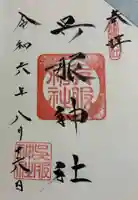 奉拝
呉服神社
令和六年八月十六日